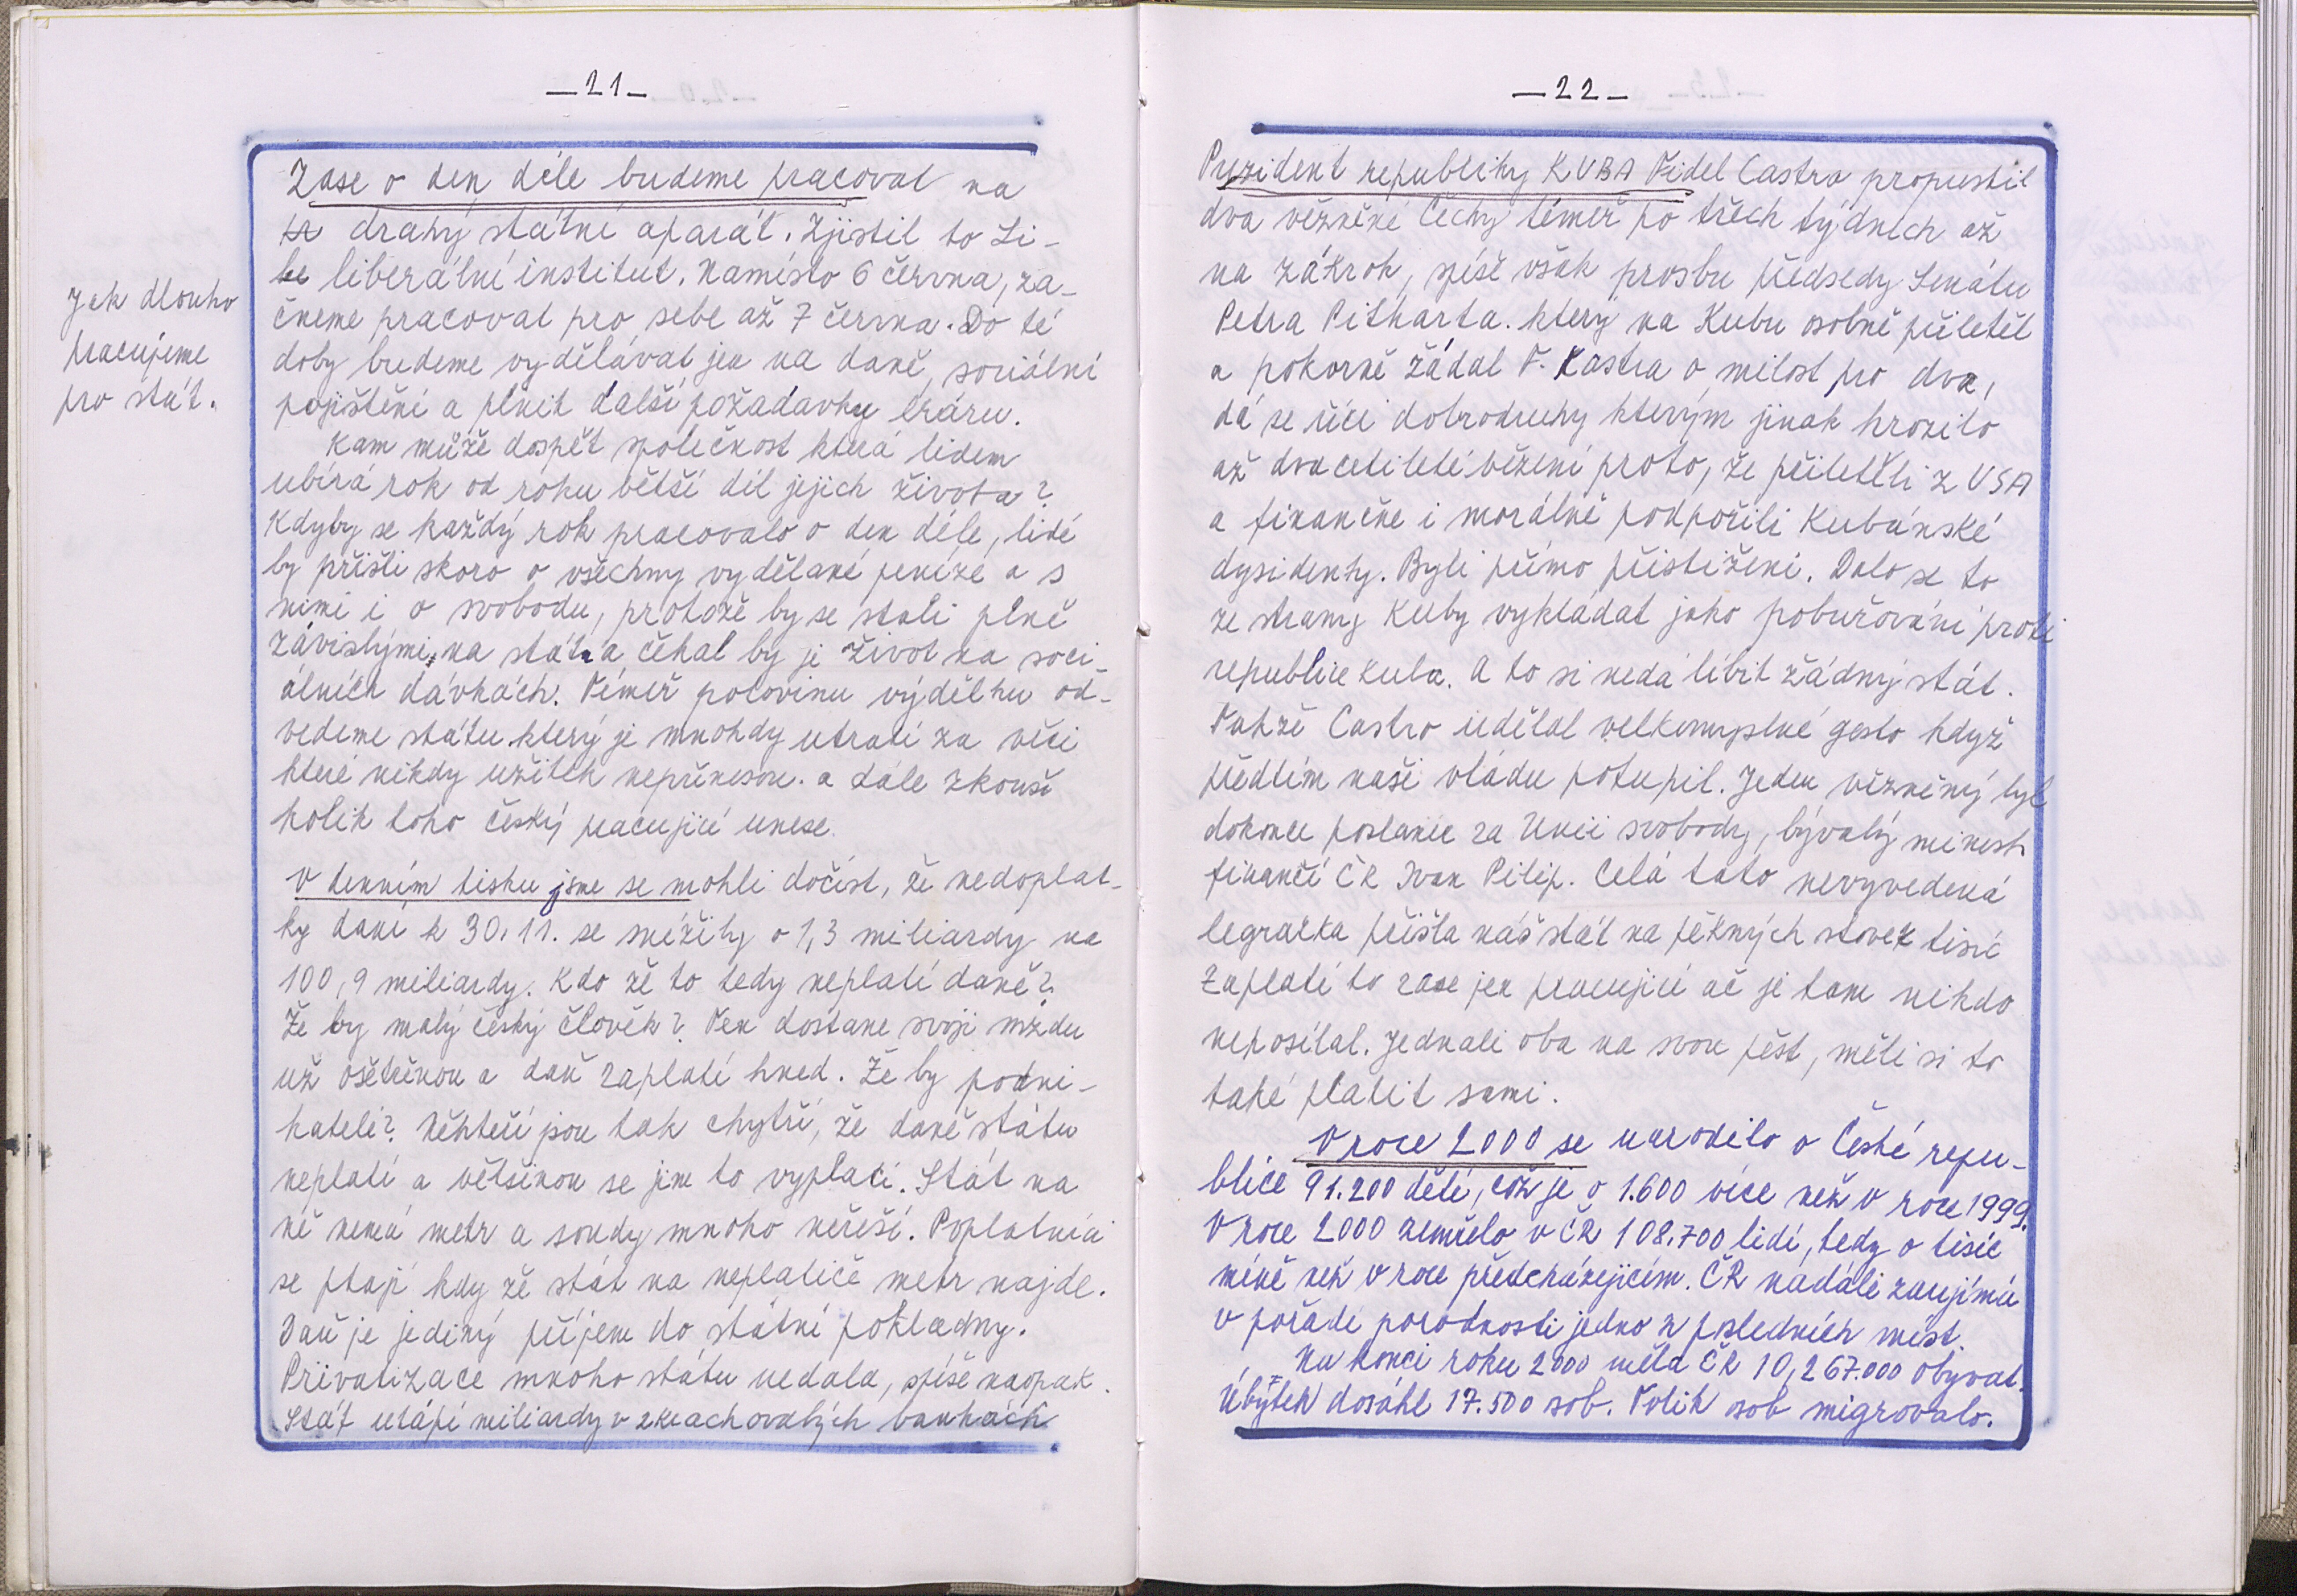 —21—
Zase o den déle budeme pracovat na
drahý státní aparát. Zjistil to Li-
liberální institut. Namísto 6 června, za-
čneme pracovat pro sebe až 7 června. Do té
doby budeme vydělávat jen na daně, sociální
pojištění a plnit další požadavky eráru.
Kam může dospět společnost která lidem
ubírá rok od roku větší díl jejich života?
Kdyby se každý rok pracovalo o den déle, lidé
by přišli skoro o všechny vydělané peníze a s
nimi i o svobodu, protože by se stali plně
závislými na státu a čekal by je život na soci-
álních dávkách. Téměř polovinu výdělku od-
vedeme státu který je mnohdy utratí za věci
které nikdy užitek nepřinesou. a dále zkouší
kolik toho český pracující unese.
V denním tisku jsme se mohli dočíst, že nedoplat-
ky daní k 30.11. se snížily o 1,3 miliardy na
100,9 miliardy. Kdo že to tedy neplatí daně?
Že by malý český člověk? Ten dostane svoji mzdu
už ošetřenou a daň zaplatí hned. Že by podni-
katelé? Někteří jsou tak chytří, že daně státu
neplatí a většinou se jim to vyplácí. Stát na
ně nemá metr a soudy mnoho neřeší. Poplatníci
se ptají kdy že stát na neplatiče metr najde.
Daň je jediný příjem do státní pokladny.
Privatizace mnoho státu nedala, spíše naopak.
Stát utápí miliardy v zkrachovalých bankách
Jak dlouho
pracujeme
pro stát.
—22—
Prezident republiky KUBA Fidel Castro propustil
dva vězněné Čechy téměř po třech týdnech až
na zákrok, spíše však prosbu předsedy Senátu
Petra Pitharta. který na Kubu osobně přiletěl
a pokorně žádal F. Kastra o milost pro dva,
dá se říci dobrodruhy kterým jinak hrozilo
až dvacetileté vězení proto, že přiletěli z USA
a finančně i morálně podpořili Kubánské
dysidenty. Byli přímo přistiženi. Dalo se to
ze strany Kuby vykládat jako pobuřování proti
republice Kuba. A to si nedá líbit žádný stát.
Takže Castro udělal velkomyslné gesto když
předtím naši vládu potupil. Jeden vězněný byl
dokonce poslanec za Unii svobody, bývalý ministr
financí ČR Ivan Pilip. Celá tato nevyvedená
legrácka přišla náš stát na pěkných stovek tisíc
Zaplatí to zase jen pracující ač je tam nikdo
neposílal. Jednali oba na svou pěst, měli si to
také platit sami.
V roce 2000 se narodilo v České repu-
blice 91.200 dětí, což je o 1.600 více než v roce 1999.
V roce 2000 zemřelo v ČR 108.700 lidí, tedy o tisíc
méně než v roce předcházejícím. ČR nadále zaujímá
v pořadí porodnosti jedno z posledních míst.
Na konci roku 2000 měla ČR 10,267.000 obyvat.
Úbytek dosáhl 17.500 osob. Tolik osob migrovalo.